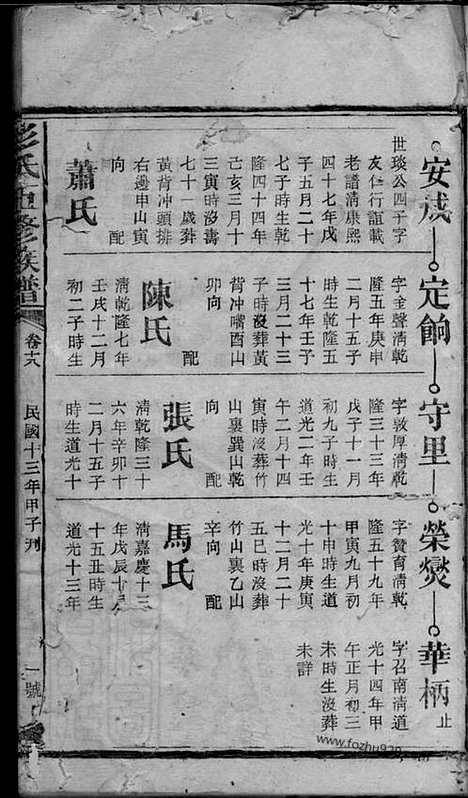 安茂
世琰公四子字
友仁行誼載
老譜淸康熙
四十七年戊
子五月二十
七子時生乾
隆四十四年
己亥三月十
三寅時沒壽
七十一歲葬
黃背冲頭排
右邊申山寅
向 配
蕭氏
定餉
字金聲淸乾
隆五年庚申
二月十五子
時生乾隆五
十七年壬子
三月二十三
子時沒葬黃
背冲嘴酉山
卯向 配
陳氏
淸乾隆七年
壬戌十二月
初二子時生
守里
字敦厚淸乾
隆三十三年
戊子十一月
初九子時生
道光二年壬
午二月十四
寅時沒葬竹
山裏巽山乾
向 配
張氏
淸乾隆三十
六年辛卯十
二月十五子
時生道光十
榮爕
字贊育淸乾
隆五十九年
甲寅九月初
十申時生道
光十年庚寅
十二月二十
五巳時沒葬
竹山裏乙山
辛向 配
馬氏
淸嘉慶十三
年戊辰十月
十五丑時生
道光十三年
華柄 止
字召南淸道
光十四年甲
午正月初三
未時生沒葬
未詳
氏五修族譜
民國十三年甲子刋
一號